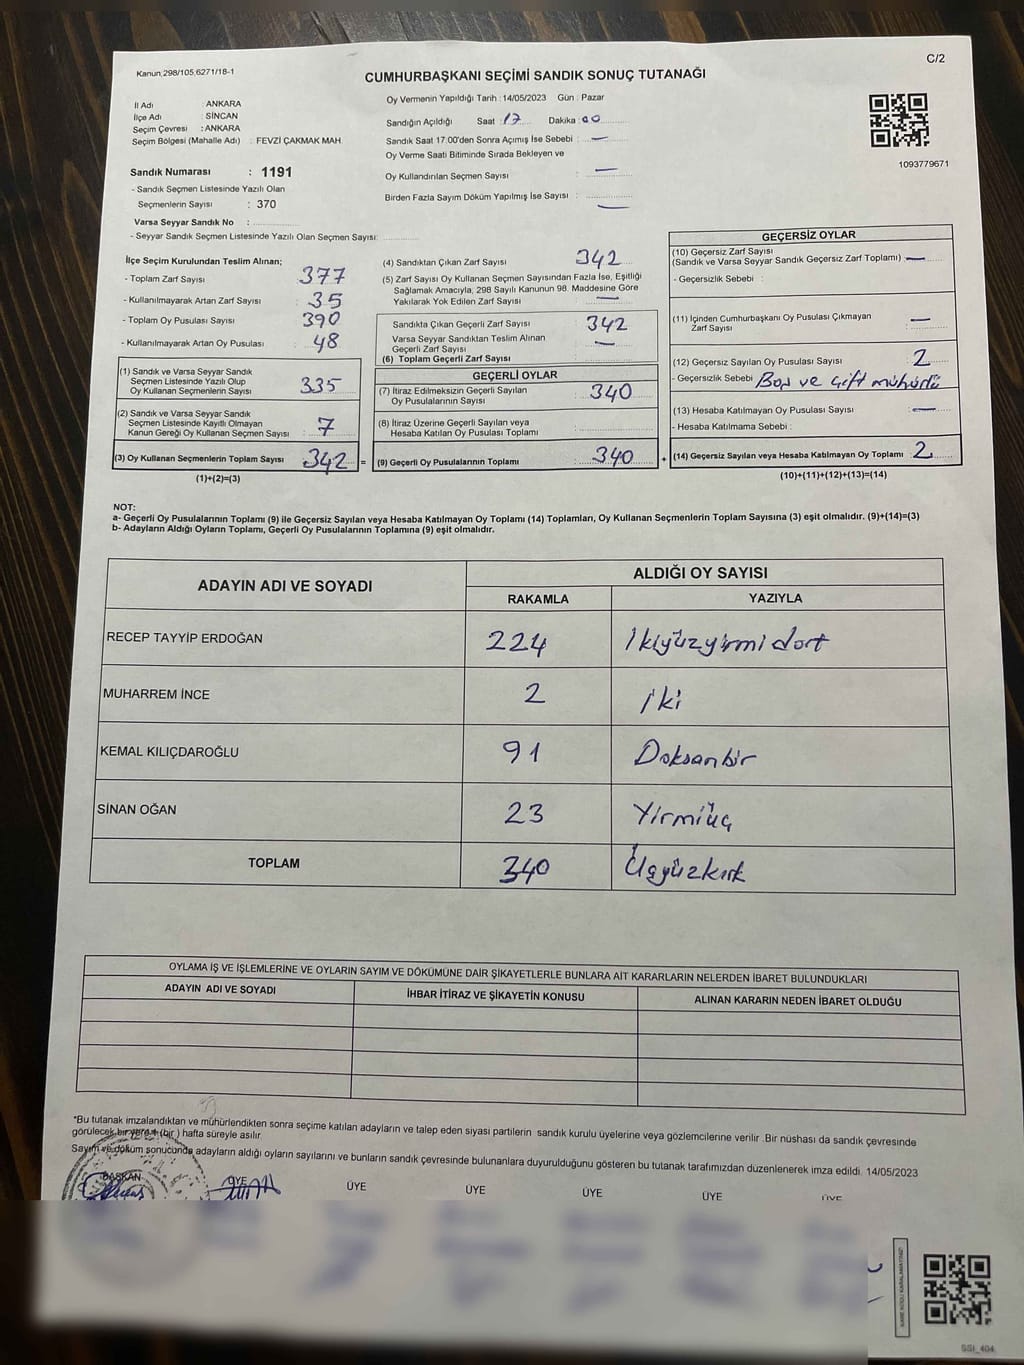 Kanun;298/105,6271/18-1
C/2
CUMHURBAŞKANI SEÇİMİ SANDIK SONUÇ TUTANAĞI
İl Adı : ANKARA
İlçe Adı : SİNCAN
Seçim Çevresi : ANKARA
Seçim Bölgesi (Mahalle Adı) : FEVZİ ÇAKMAK MAH
Oy Vermenin Yapıldığı Tarih : 14/05/2023 Gün : Pazar
Sandığın Açıldığı Saat : 17 Dakika : 00
Sandık Saat 17:00'den Sonra Açımış İse Sebebi : —
Oy Verme Saati Bitiminde Sırada Bekleyen ve
Oy Kullandırılan Seçmen Sayısı : —
Birden Fazla Sayım Döküm Yapılmış İse Sayısı : —
1093779671
Sandık Numarası : 1191
- Sandık Seçmen Listesinde Yazılı Olan
Seçmenlerin Sayısı : 370
Varsa Seyyar Sandık No :
- Seyyar Sandık Seçmen Listesinde Yazılı Olan Seçmen Sayısı:
İlçe Seçim Kurulundan Teslim Alınan;
- Toplam Zarf Sayısı : 377
- Kullanılmayarak Artan Zarf Sayısı : 35
- Toplam Oy Pusulası Sayısı : 390
- Kullanılmayarak Artan Oy Pusulası : 48
(1) Sandık ve Varsa Seyyar Sandık
Seçmen Listesinde Yazılı Olup
Oy Kullanan Seçmenlerin Sayısı : 335
(2) Sandık ve Varsa Seyyar Sandık
Seçmen Listesinde Kayıtlı Olmayan
Kanun Gereği Oy Kullanan Seçmen Sayısı : 7
(3) Oy Kullanan Seçmenlerin Toplam Sayısı : 342 =
(1)+(2)=(3)
(4) Sandıktan Çıkan Zarf Sayısı : 342
(5) Zarf Sayısı Oy Kullanan Seçmen Sayısından Fazla İse, Eşitliği
Sağlamak Amacıyla; 298 Sayılı Kanunun 98. Maddesine Göre
Yakılarak Yok Edilen Zarf Sayısı : —
Sandıkta Çıkan Geçerli Zarf Sayısı : 342
Varsa Seyyar Sandıktan Teslim Alınan
Geçerli Zarf Sayısı : —
(6) Toplam Geçerli Zarf Sayısı :
GEÇERLİ OYLAR
(7) İtiraz Edilmeksizin Geçerli Sayılan
Oy Pusulalarının Sayısı : 340
(8) İtiraz Üzerine Geçerli Sayılan veya
Hesaba Katılan Oy Pusulası Toplamı :
(9) Geçerli Oy Pusulalarının Toplamı : 340 +
GEÇERSİZ OYLAR
(10) Geçersiz Zarf Sayısı
(Sandık ve Varsa Seyyar Sandık Geçersiz Zarf Toplamı) : —
- Geçersizlik Sebebi :
(11) İçinden Cumhurbaşkanı Oy Pusulası Çıkmayan
Zarf Sayısı : —
(12) Geçersiz Sayılan Oy Pusulası Sayısı : 2
- Geçersizlik Sebebi Boş ve çift mühürlü
(13) Hesaba Katılmayan Oy Pusulası Sayısı : —
- Hesaba Katılmama Sebebi :
(14) Geçersiz Sayılan veya Hesaba Katılmayan Oy Toplamı : 2
(10)+(11)+(12)+(13)=(14)
NOT:
a- Geçerli Oy Pusulalarının Toplamı (9) ile Geçersiz Sayılan veya Hesaba Katılmayan Oy Toplamı (14) Toplamları, Oy Kullanan Seçmenlerin Toplam Sayısına (3) eşit olmalıdır. (9)+(14)=(3)
b- Adayların Aldığı Oyların Toplamı, Geçerli Oy Pusulalarının Toplamına (9) eşit olmalıdır.
ADAYIN ADI VE SOYADI
ALDIĞI OY SAYISI
RAKAMLA YAZIYLA
RECEP TAYYİP ERDOĞAN 224 İkiyüzyirmi dört
MUHARREM İNCE 2 iki
KEMAL KILIÇDAROĞLU 91 Doksanbir
SİNAN OĞAN 23 Yirmiüç
TOPLAM 340 Üçyüzkırk
OYLAMA İŞ VE İŞLEMLERİNE VE OYLARIN SAYIM VE DÖKÜMÜNE DAİR ŞİKAYETLERLE BUNLARA AİT KARARLARIN NELERDEN İBARET BULUNDUKLARI
ADAYIN ADI VE SOYADI İHBAR İTİRAZ VE ŞİKAYETİN KONUSU ALINAN KARARIN NEDEN İBARET OLDUĞU
*Bu tutanak imzalandıktan ve mühürlendikten sonra seçime katılan adayların ve talep eden siyasi partilerin sandık kurulu üyelerine veya gözlemcilerine verilir .Bir nüshası da sandık çevresinde
görülecek bir yere 1 (bir ) hafta süreyle asılır.
Sayım ve döküm sonucunda adayların aldığı oyların sayılarını ve bunların sandık çevresinde bulunanlara duyurulduğunu gösteren bu tutanak tarafımızdan düzenlenerek imza edildi. 14/05/2023
BAŞKAN ÜYE ÜYE ÜYE ÜYE ÜYE ÜYE
SSI_404